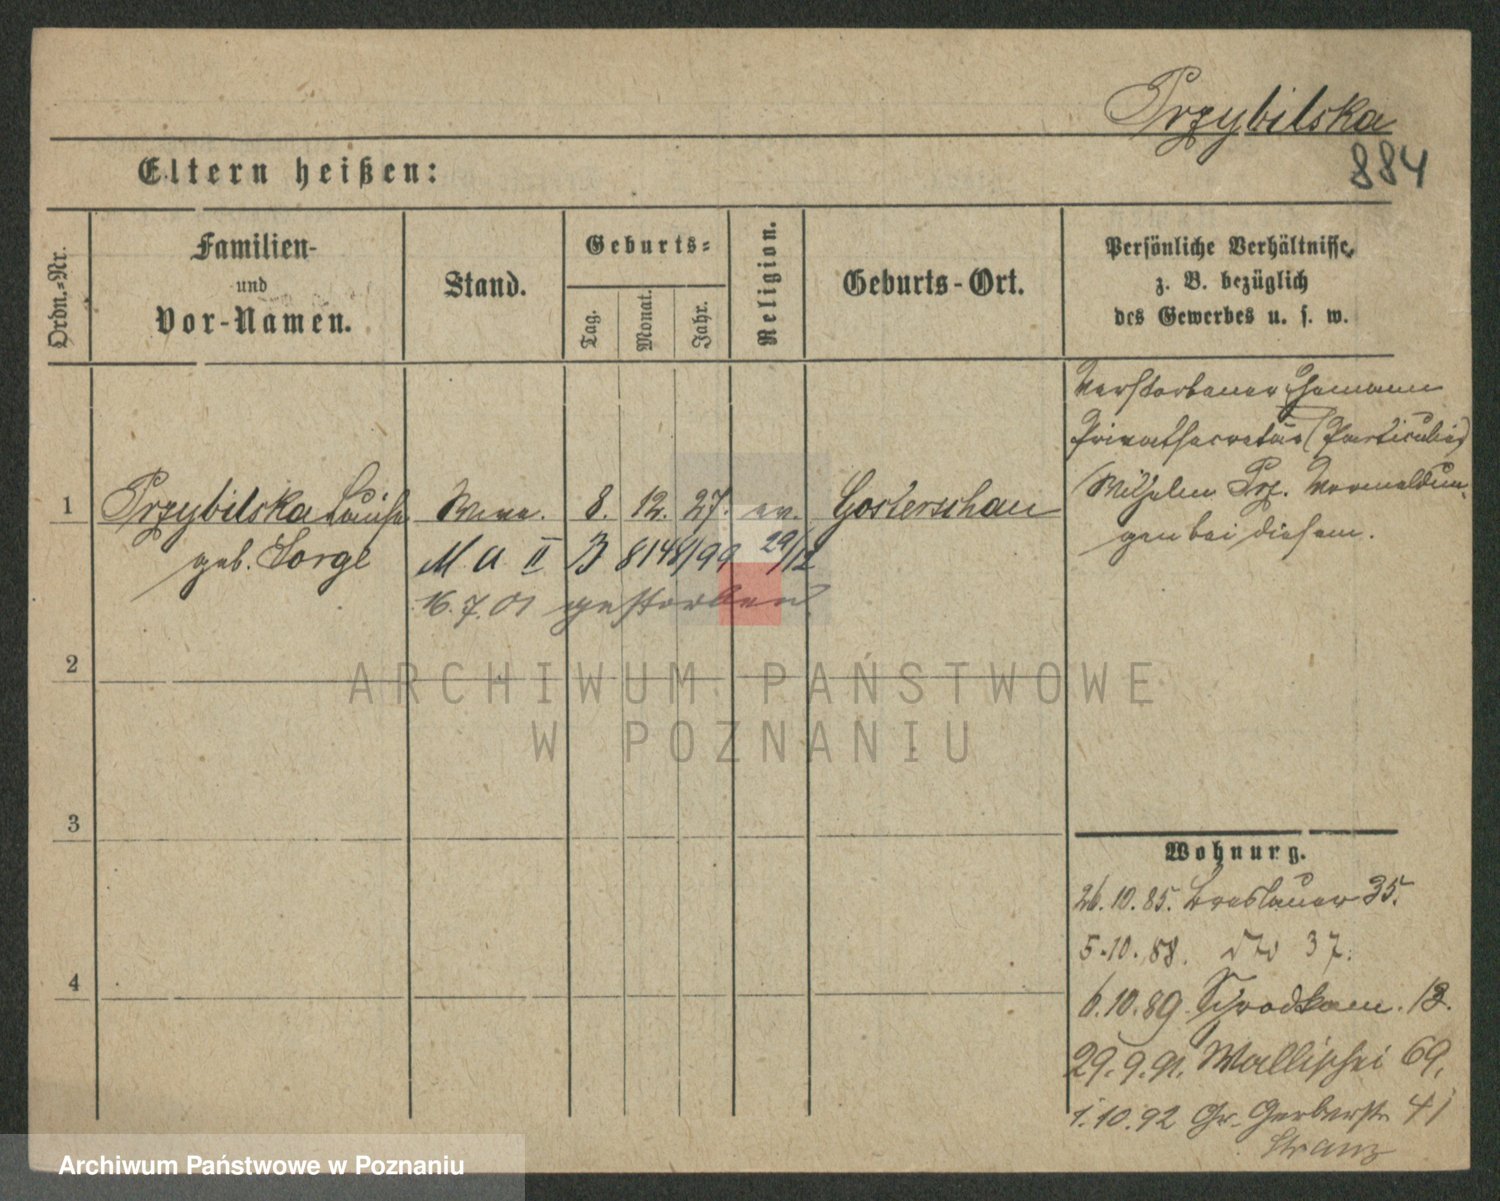 Przybilska
884
Eltern heißen:
Ordn.-Nr.
Familien-
und
Vor-Namen.
Stand.
Geburts-
Tag.
Monat.
Jahr.
Religion.
Geburts-Ort.
Persönliche Verhältnisse,
z. B. bezüglich
des Gewerbes u. s. w.
Verstorbener Ehemann
Privatsecretär (Particulier)
Wilhelm Prz. Vormeldun-
gen bei diesem.
1 Przybilska Luise Wwe. 8. 12. 27. ev. Gosterschau
geb. Sorge M. A II B 8148/99 29/12
16.7.01 gestorben
2
ARCHIWUM PAŃSTWOWE
W POZNANIU
3
4
Wohnung.
26.10.85. Breslauer 35.
5.10.88. dto 37.
6.10.89. Schrodkam. 13.
29.9.91. Wallischei 69,
1.10.92 Gr. Gerberstr. 41
Archiwum Państwowe w Poznaniu